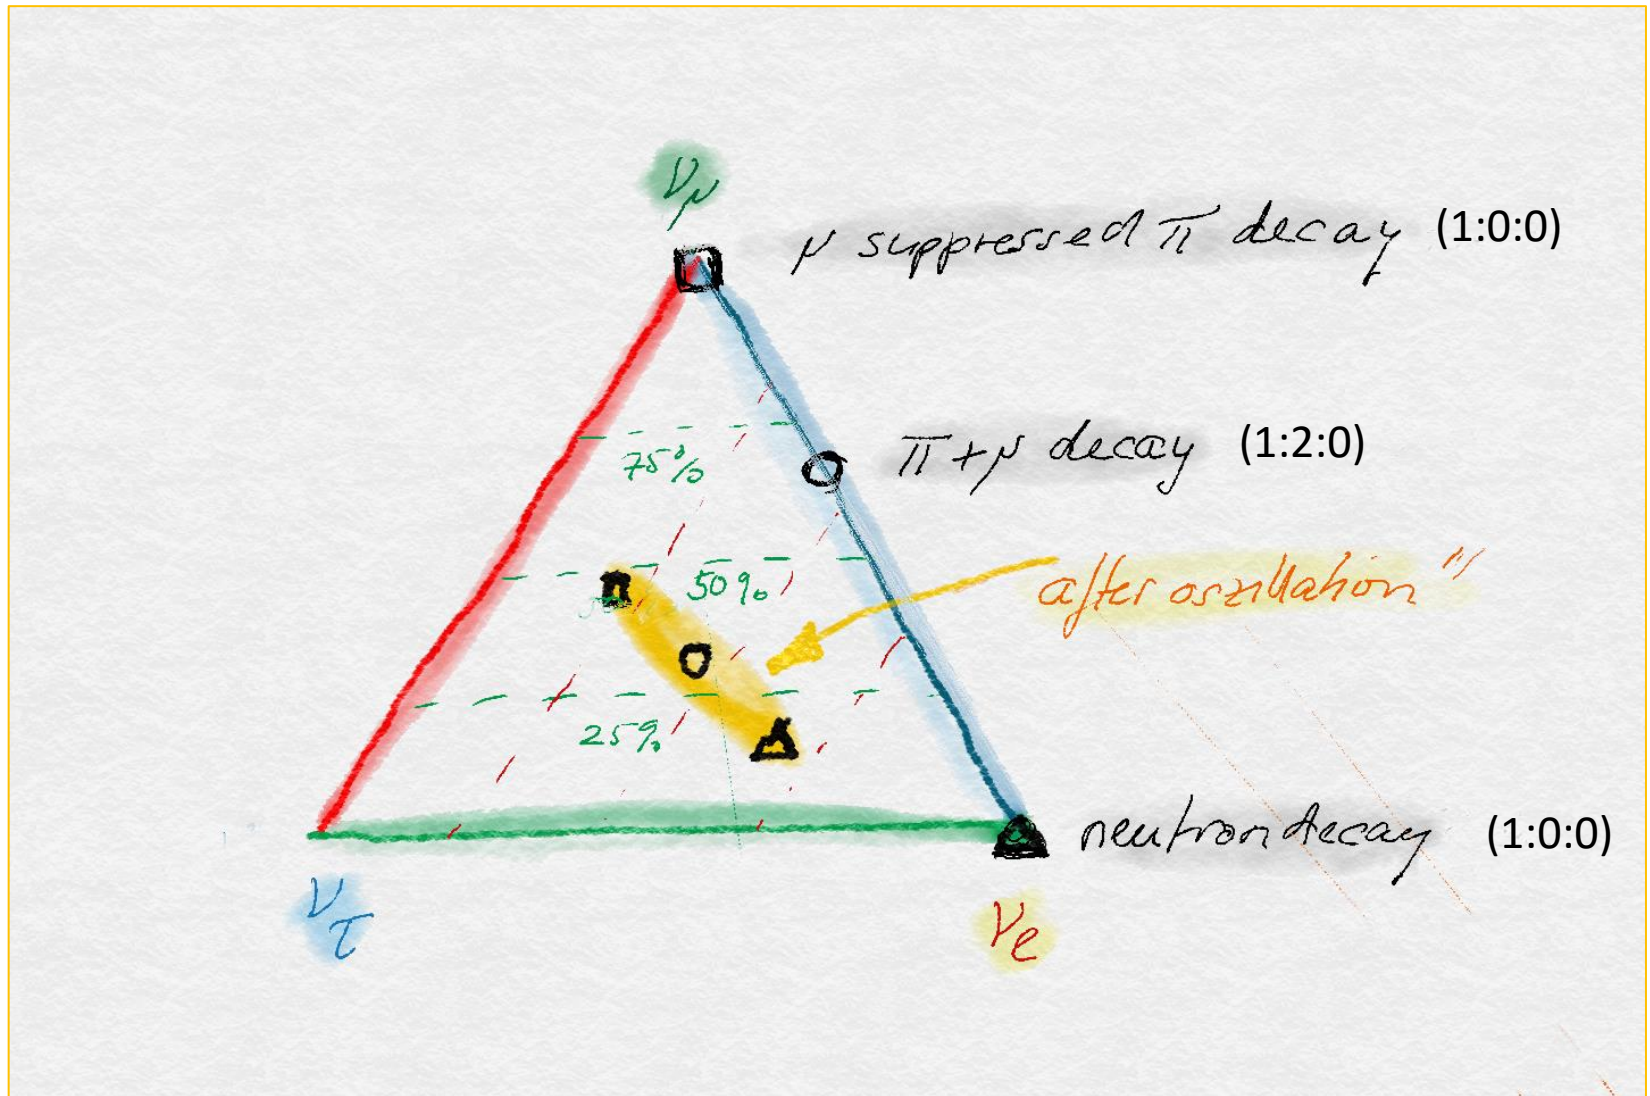 νμ
μ suppressed π decay (1:0:0)
π+μ decay (1:2:0)
75%
50%
after oszillation"
25%
neutron decay (1:0:0)
ντ
νe